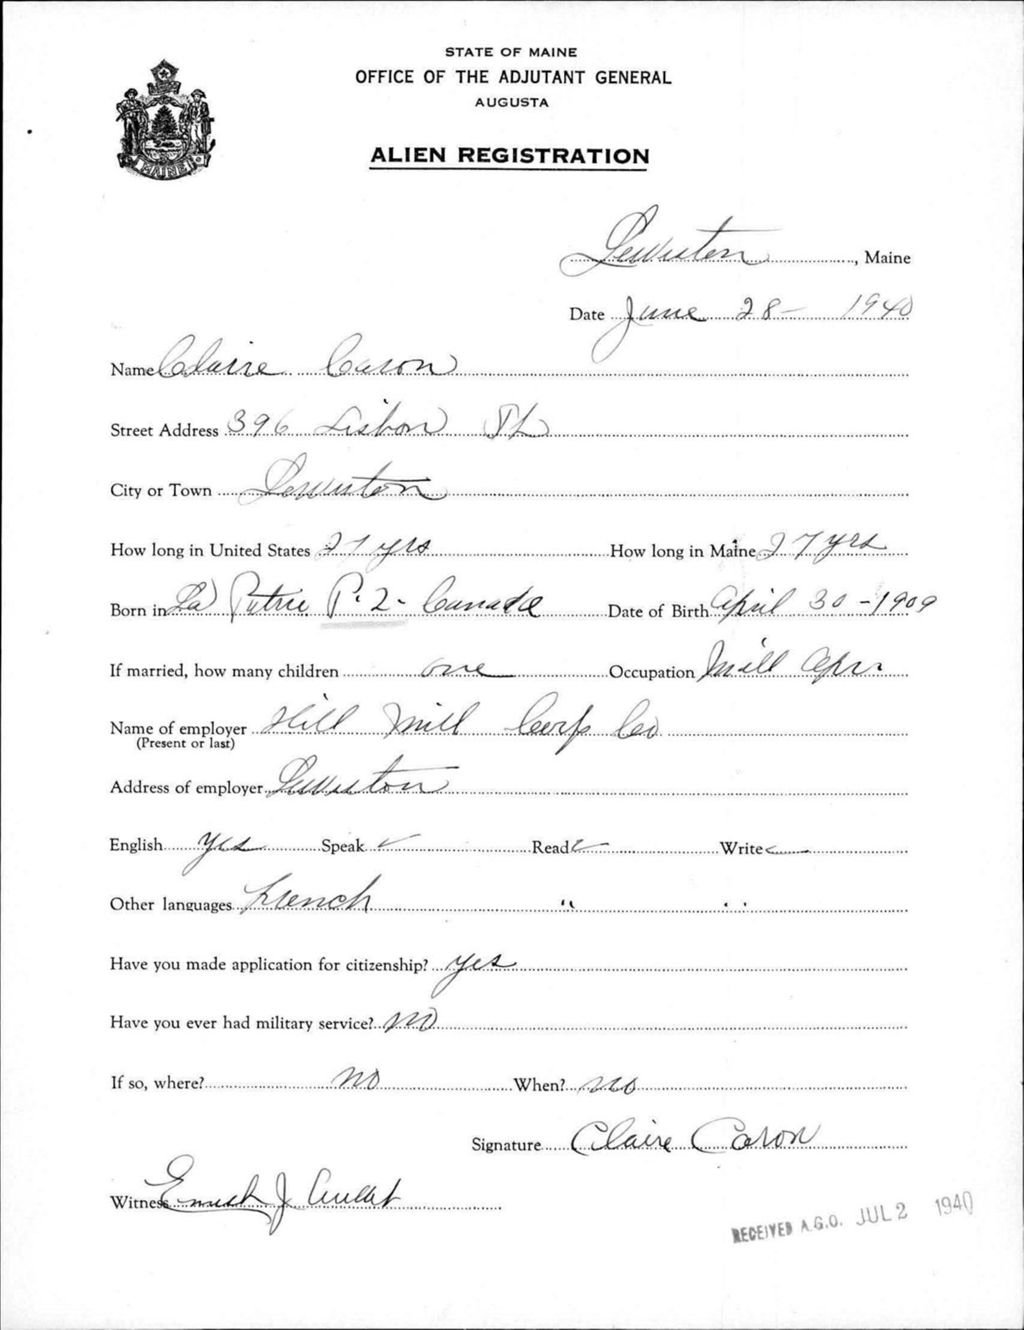 STATE OF MAINE
OFFICE OF THE ADJUTANT GENERAL
AUGUSTA
MAINE
ALIEN REGISTRATION
Lewiston, Maine
Date June 28 - 1940
Name Claire Caron
Street Address 396 Lisbon St
City or Town Lewiston
How long in United States 27 yrs How long in Maine 27 yrs
Born in La Patrie P.Q. Canada Date of Birth April 30 - 1909
If married, how many children one Occupation Mill Opr.
Name of employer Hill Mill Corp Co
(Present or last)
Address of employer Lewiston
English yes Speak ✓ Read ✓ Write ✓
Other languages French " "
Have you made application for citizenship? yes
Have you ever had military service? no
If so, where? no When? no
Signature Claire Caron
Witness J
RECEIVED A.G.O. JUL 2 1940